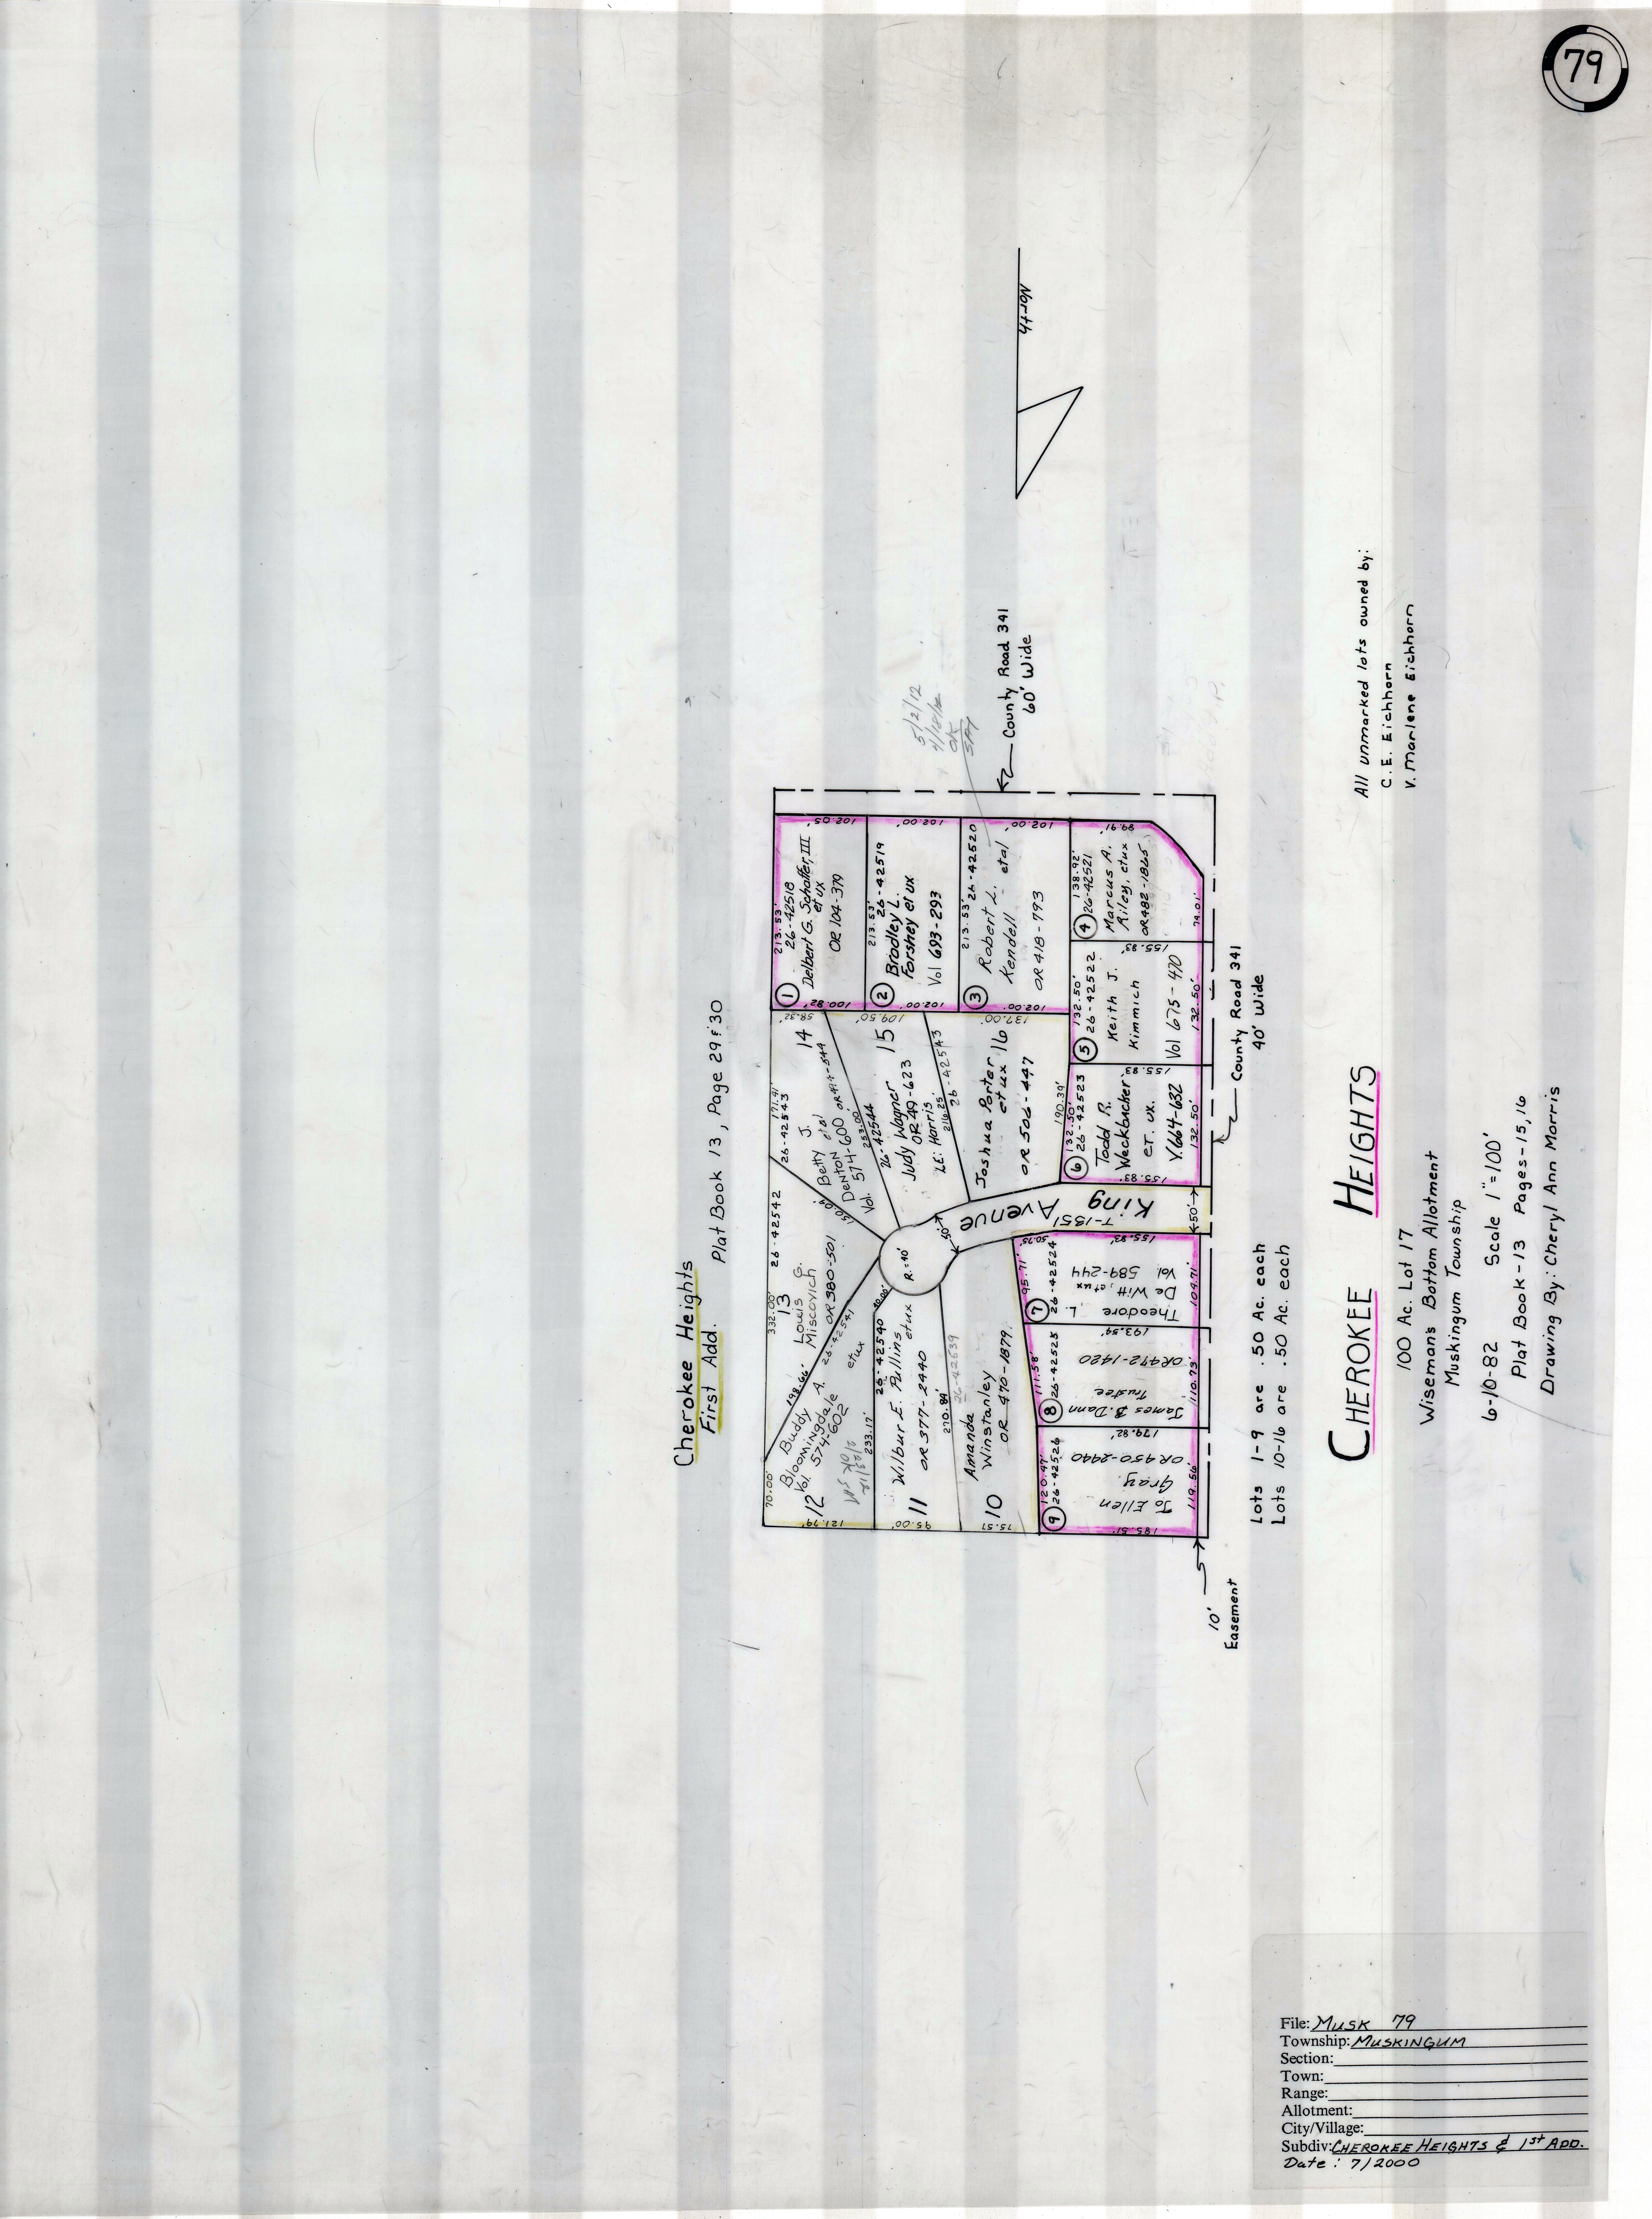 79
North
Cherokee Heights
First Add.
Plat Book 13, Page 29 & 30
5/2/12
OK
County Road 341
60' Wide
213.53'
26-42518
1
Delbert G. Schaffer, III
et ux
OR 104-379
102.05'
100.82'
213.53'
26-42519
2
Bradley L.
Forshey et ux
Vol 693-293
102.00'
102.00'
213.53'
26-42520
3
Robert L.
Kendell etal
OR 418-793
102.00'
102.00'
138.92'
4
26-42521
Marcus A.
Riley, etux
OR482-1865
99.91'
74.01'
155.83'
132.50'
5
26-42522
Keith J.
Kimmich
Vol 675-470
132.50'
155.83'
132.50'
6
26-42523
Todd R.
Weckbacker
eT. ux.
V.664-632
132.50'
155.83'
171.41'
26-42543
58.32'
14
Betty J.
etal
Denton 600
Vol. 574-
253.00'
150.09'
26-42544
109.50'
15
Judy Wagner
OR 49-623
LE: Harris
216.25'
137.00'
Joshua Porter 16
et ux
OR 506-447
190.39'
332.00'
26-42542
13
Louis G.
Miscovich
OR380-501
198.66'
70.00'
Buddy A.
Bloomingdale
Vol. 574-602
12
26-42541
etux
121.79'
233.17'
26-42540
40.00'
Wilbur E. Pullins
etux
OR377-2440
11
95.00'
270.84'
26-42639
Amanda
Winstanley
OR 470-1879
10
75.51
R=40'
50'
King Avenue
T-1551
50'
50.75'
155.83'
95.71'
7
26-42524
Theodore L.
De Witt, etux
Vol. 589-244
109.71'
193.54'
111.58'
8
26-42525
James B. Dann
Trustee
OR472-1420
110.73'
179.82'
120.47'
9
26-42526
Jo Ellen
Gray
OR450-2440
119.56'
185.51'
County Road 341
40' Wide
10'
Easement
Lots 1-9 are .50 Ac. each
Lots 10-16 are .50 Ac. each
All unmarked lots owned by:
C.E. Eichhorn
V. Marlene Eichhorn
CHEROKEE HEIGHTS
100 Ac. Lot 17
Wiseman's Bottom Allotment
Muskingum Township
6-10-82 Scale 1"=100'
Plat Book-13 Pages-15,16
Drawing By: Cheryl Ann Morris
File: MUSK 79
Township: MUSKINGUM
Section:
Town:
Range:
Allotment:
City/Village:
Subdiv: CHEROKEE HEIGHTS & 1st ADD.
Date: 7/2000